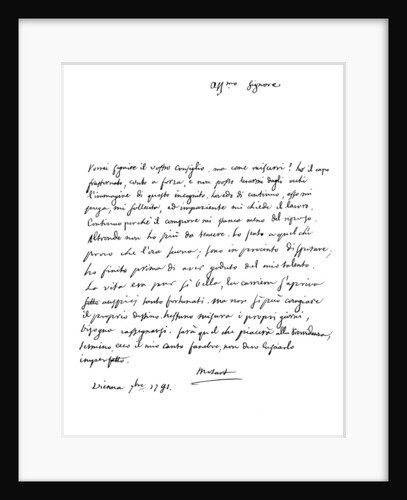 Aff.mo Signore
Vorrei seguire il vostro consiglio, ma come riuscirvi? ho il capo
frastornato, conto a forza, e non posso levarmi dagli occhi
l'immagine di questo incognito. Lo vedo di continuo, esso mi
prega, mi sollecita, ed impaziente mi chiede il lavoro.
Continuo perchè il comporre mi stanca meno del riposo.
Altronde non ho più da tremere. Lo sento a quel che
provo che l'ora suona; sono in procinto di spirare;
ho finito prima di aver goduto del mio talento.
La vita era pur sì bella, la carriera s'apriva
sotto auspici tanto fortunati, ma non si può cangiare
il proprio destino. Nessuno misura i propri giorni,
bisogna rassegnarsi. sarà quel che piacerà alla Provvidenza,
termino, ecco il mio canto funebre, non devo lasciarlo
imperfetto.
Mozart
Vienna 7bre 1791.